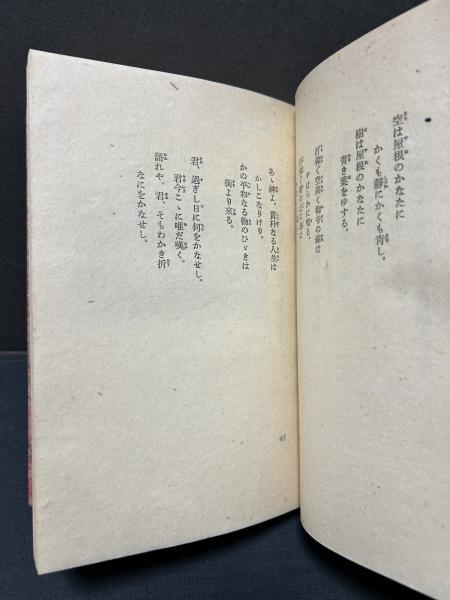 空は屋根のかなたに
かくも静にかくも青し。
樹は屋根のかなたに
青き葉をゆする。
打仰ぐ空高く御寺の鐘は
やはらかに鳴る。
あゝ神よ、質朴なる人生は
かしこなりけり。
かの平和なる物のひゞきは
街より来る。
君、過ぎし日に何をかなせし。
君今こゝに唯だ嘆く。
語れや、君、そもわかき折
なにをかなせし。
43